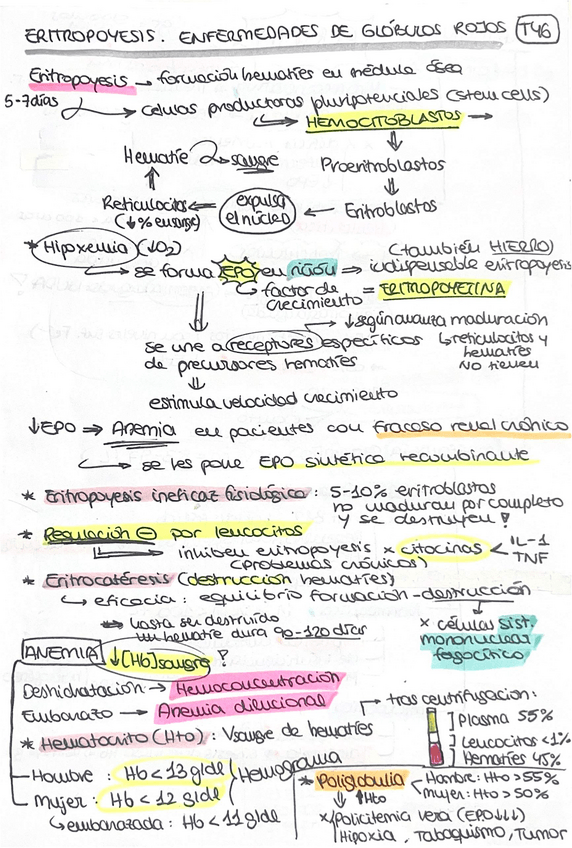 ERITROPOYESIS. ENFERMEDADES DE GLÓBULOS ROJOS T46
Eritropoyesis → formación hematíes en médula ósea
5-7días → células productoras pluripotenciales (stem cells)
↳ HEMOCITOBLASTOS →
Hematíe sangre Proeritroblastos
Reticulocitos ← expulsa el núcleo ← Eritroblastos
(↓% en sangre)
* Hipoxemia (↓O2) (también HIERRO)
↳ se forma EPO en riñón ⇒ indispensable eritropoyesis
↳ factor de crecimiento = ERITROPOYETINA
→ ↓ según avanza maduración
se une a receptores específicos ↳ reticulocitos y
de precursores hematíes hematíes
NO tienen
estimula velocidad crecimiento
↓EPO ⇒ Anemia en pacientes con fracaso renal crónico
↳ se les pone EPO sintética recombinante
* Eritropoyesis ineficaz fisiológica: 5-10% eritroblastos
no maduran por completo
y se destruyen!
* Regulación ⊖ por leucocitos
inhiben eritropoyesis x citocinas < IL-1
(problemas crónicos) TNF
* Eritrocatéresis (destrucción hematíes)
↳ eficacia: equilibrio formación-destrucción
⇒ hasta ser destruido x células sist.
un hematíe dura 90-120 días mononuclear
fagocítico
ANEMIA ↓[Hb]sangre ?
Deshidratación → Hemoconcentración
Embarazo → Anemia dilucional
→ tras centrifugación:
* Hematocrito (Hto): Vsangre de hematíes
Plasma 55%
Leucocitos <1%
Hematíes 45%
Hombre: Hb < 13 g/dl
Mujer: Hb < 12 g/dl
Hemograma
↳ embarazada: Hb < 11 g/dl
* Poliglobulia < Hombre: Hto > 55%
Mujer: Hto > 50%
↑Hto
x Policitemia vera (EPO↓↓↓)
Hipoxia, Tabaquismo, Tumor